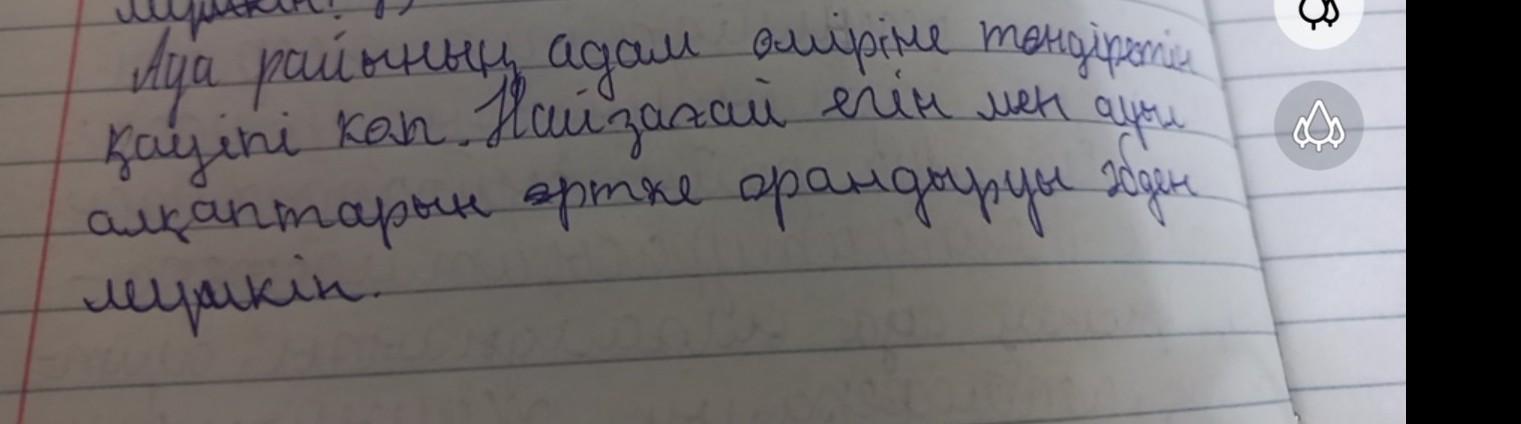 мүмкін.
Ауа райының адам өміріне төндіретін
қауіпі көп. Найзағай егін мен ауыл
алқаптарын өртке орандыруы әбден
мүмкін.